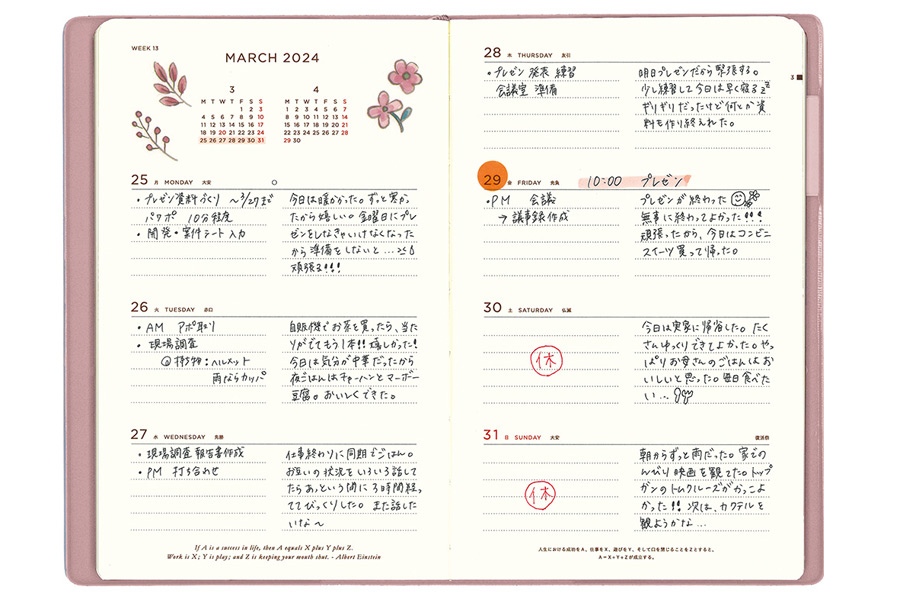 WEEK 13
MARCH 2024
3
M T W T F S S
1 2 3
4 5 6 7 8 9 10
11 12 13 14 15 16 17
18 19 20 21 22 23 24
25 26 27 28 29 30 31
4
M T W T F S S
1 2 3 4 5 6 7
8 9 10 11 12 13 14
15 16 17 18 19 20 21
22 23 24 25 26 27 28
29 30
25 月 MONDAY 大安
・プレゼン資料づくり 〜3/27まで
パワポ 10分程度
・開発・案件データ入力
今日は暖かかった。ずっと寒かっ
たから嬉しい。金曜日にプレ
ゼンをしなきゃいけなくなった
から準備をしないと…><
頑張る!!!
26 火 TUESDAY 赤口
・AM アポ取り
・現場調査
持ち物:ヘルメット
雨ならカッパ
自販機でお茶を買ったら、当た
りがでてもう1本!!嬉しかった!
今日は気分が中華だったから
夜ごはんはチャーハンとマーボー
豆腐。おいしくできた。
27 水 WEDNESDAY 先勝
・現場調査報告書作成
・PM 打ち合わせ
仕事終わりに同期でごはん。
お互いの状況をいろいろ話して
たらあっという間に3時間経っ
ててびっくりした。また話した
いな〜
If A is a success in life, then A equals X plus Y plus Z.
Work is X; Y is play; and Z is keeping your mouth shut. - Albert Einstein
28 木 THURSDAY 友引
・プレゼン 発表 練習
会議室 準備
明日プレゼンだから緊張する。
少し練習して今日は早く寝るzzz
ギリギリだったけど何とか資
料も作り終えれた。
3
29 金 FRIDAY 先負
10:00 プレゼン
・PM 会議
→議事録作成
プレゼンが終わった
無事に終わってよかった!!!
頑張ったから、今日はコンビニ
スイーツ買って帰った。
30 土 SATURDAY 仏滅
休
今日は実家に帰省した。たく
さんゆっくりできてよかった。やっ
ぱりお母さんのごはんはお
いしいと思った。毎日食べた
い…
31 日 SUNDAY 大安
復活祭
休
朝からずっと雨だった。家での
んびり映画を観てた。トップ
ガンのトムクルーズがかっこよ
かった!!次は、カクテルを
観ようかな…
人生における成功をA、仕事をX、遊びをY、そして口を閉じることをZとすると、
A=X+Y+Zが成立する。